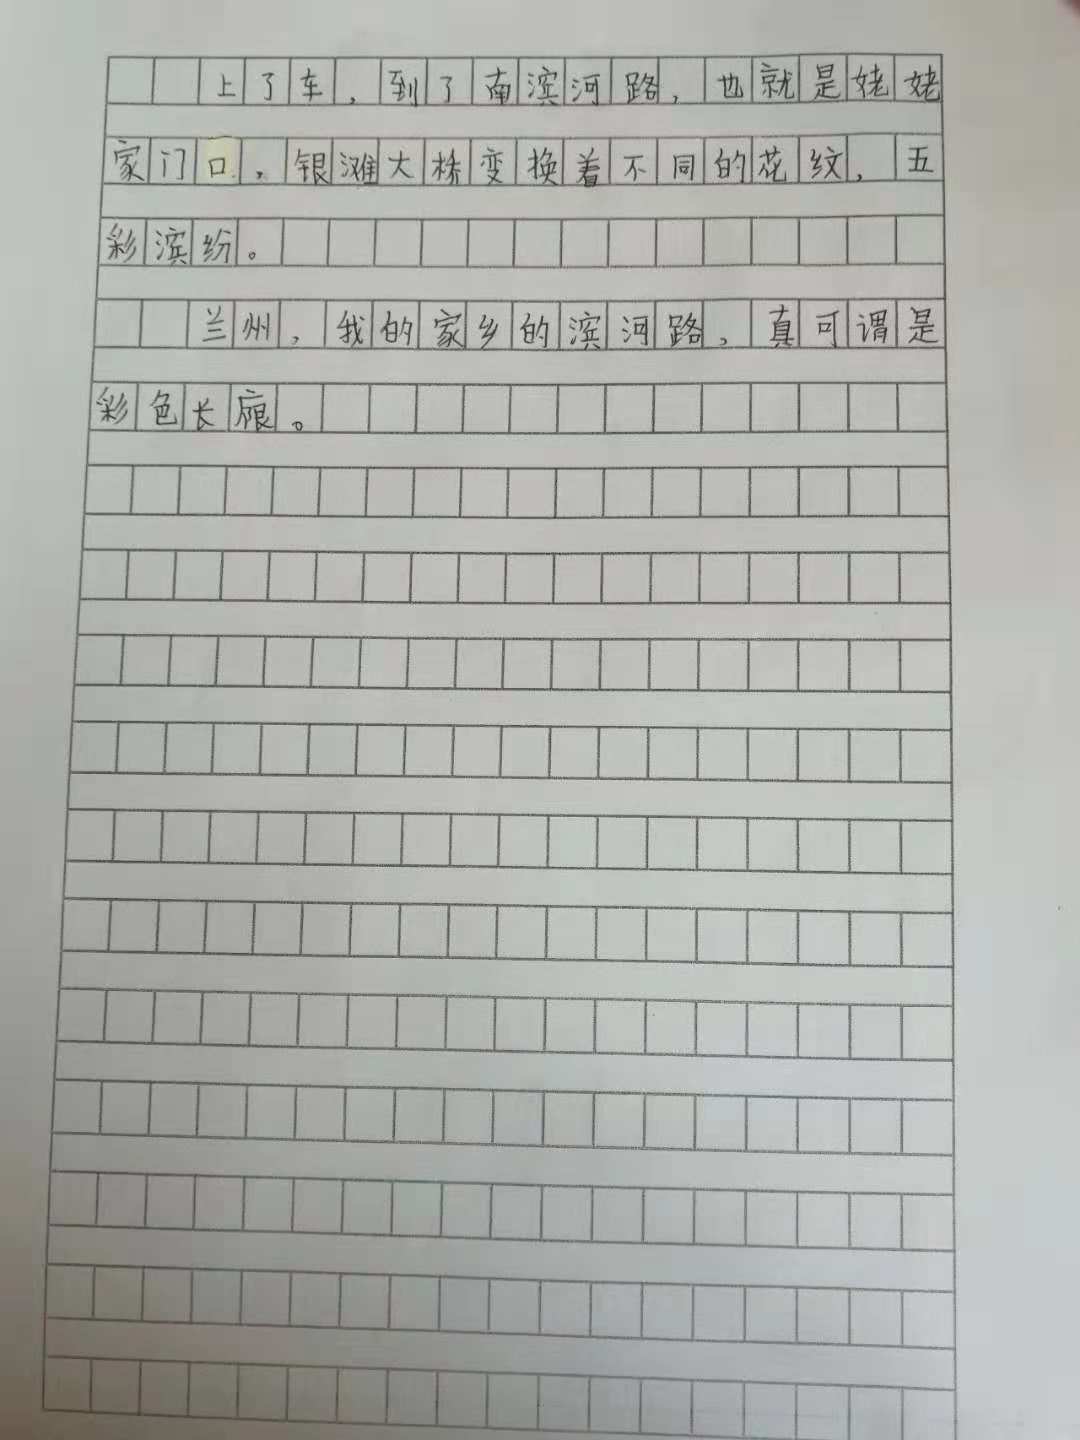 上了车，到了南滨河路，也就是姥姥
家门口，银滩大株变换着不同的花纹，五
彩滨纷。
兰州，我的家乡的滨河路，真可谓是
彩色长廊。